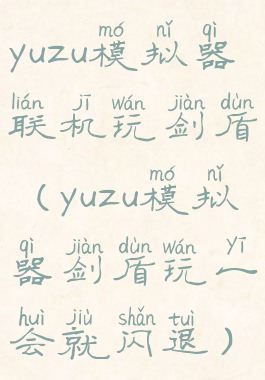 mó nǐ qì
yuzu模拟器
lián jī wán jiàn dùn
联机玩剑盾
mó nǐ
（yuzu模拟
qì jiàn dùn wán yī
器剑盾玩一
huì jiù shǎn tuì
会就闪退）